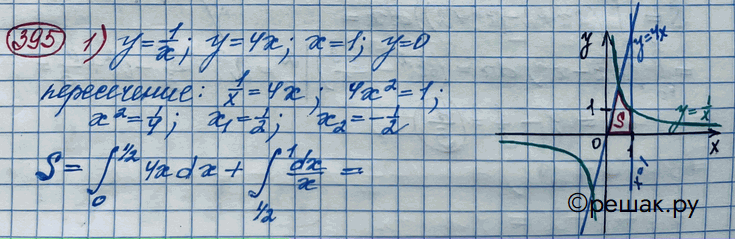 395 1) y = 1/x; y = 4x; x = 1; y = 0
пересечение: 1/x = 4x; 4x² = 1;
x² = 1/4; x₁ = 1/2; x₂ = -1/2
S = ∫₀^{1/2} 4x dx + ∫_{1/2}^{1} dx/x =
y
y=4x
1
S
y = 1/x
0
1
x
x=1
©решак.ру